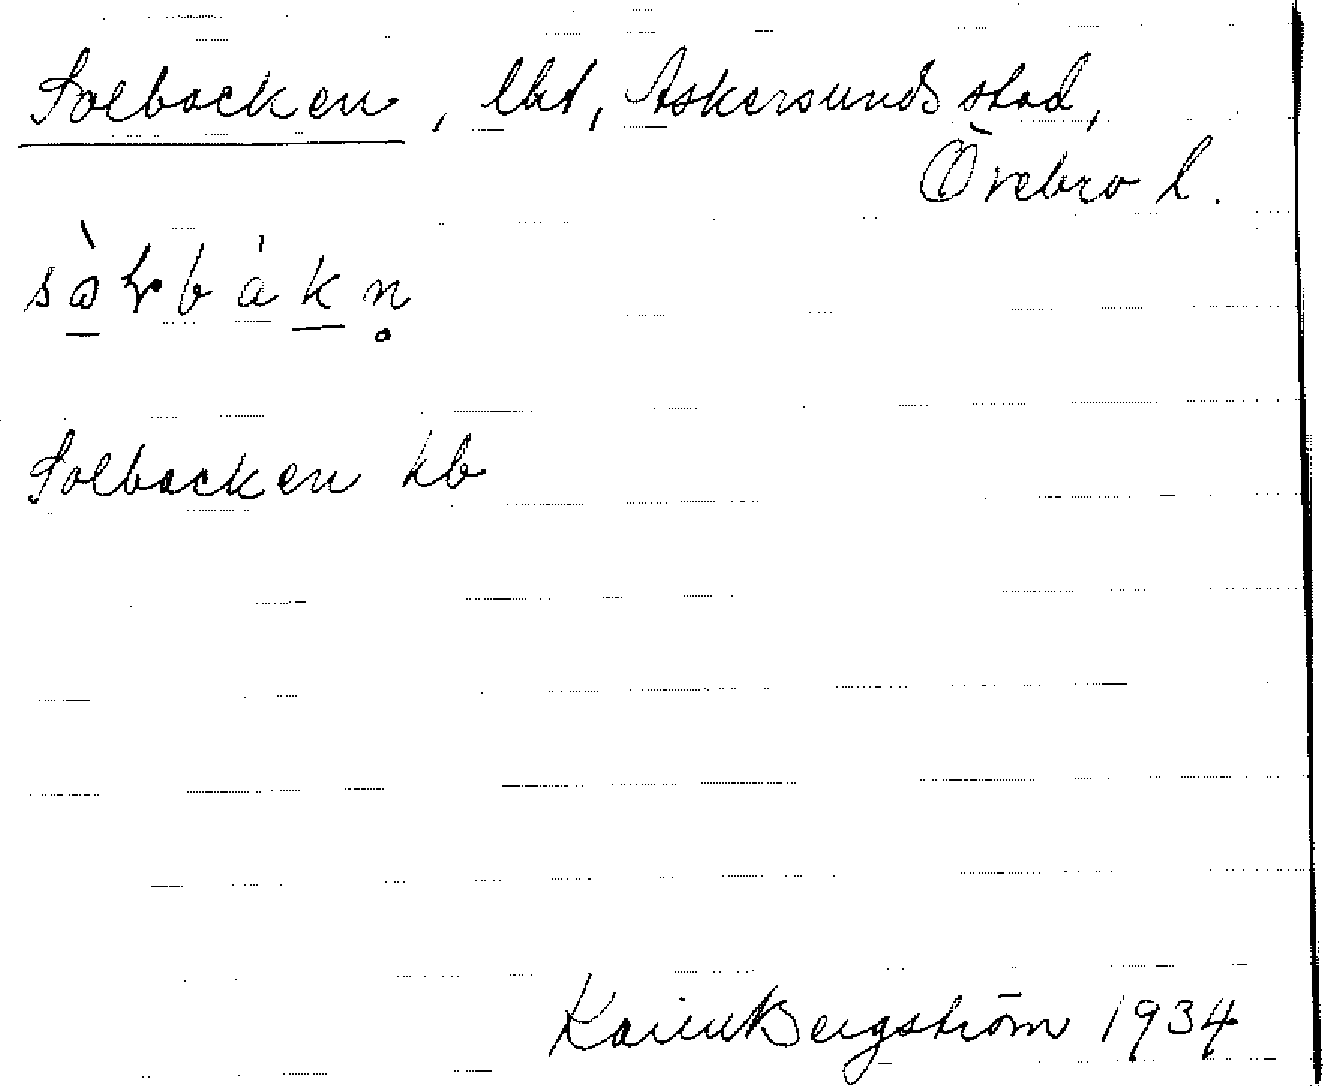 Solbacken, lht, Askersunds stad,
Örebro l.
Solbacken kb
Karin Bergström 1934